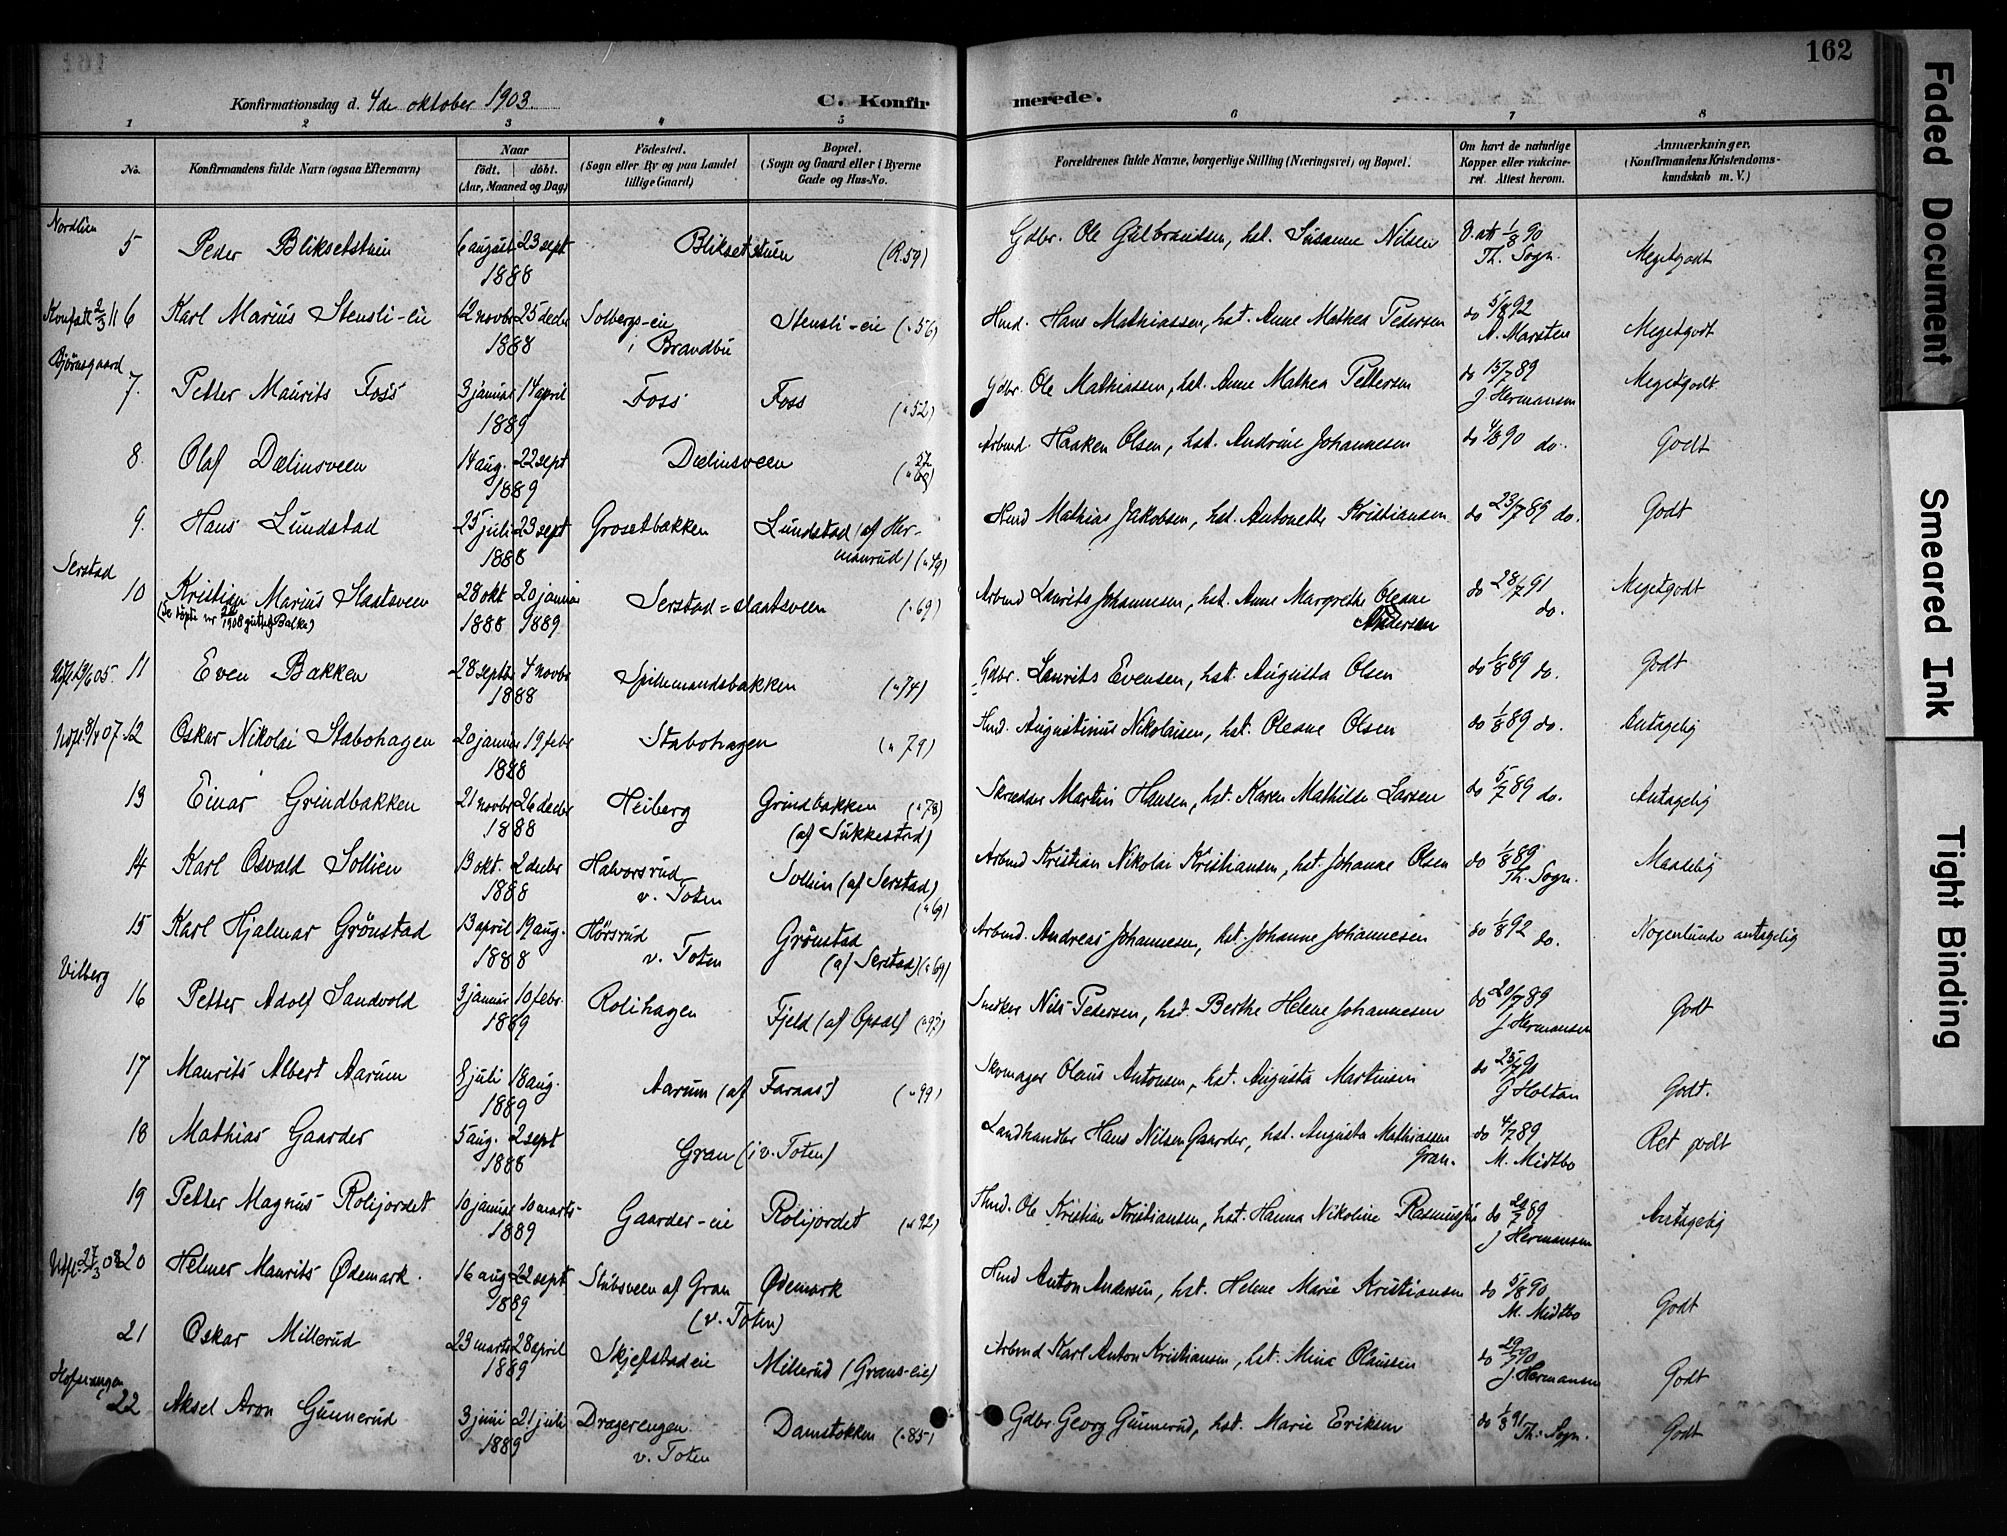 162
Konfirmationsdag d. 4de oktober 1903.
C. Konfirmerede.
1 2 3 4 5 6 7 8
No.
Konfirmandens fulde Navn (ogsaa Efternavn)
Naar
födt. döbt.
(Aar, Maaned og Dag)
Födested.
(Sogn eller By og paa Landet tillige Gaard)
Bopæl.
(Sogn og Gaard eller i Byerne Gade og Hus-No.
Forældrenes fulde Navne, borgerlige Stilling (Næringsvei) og Bopæl.
Om havt de naturlige Kopper eller vaccineret. Attest herom.
Anmærkninger.
(Konfirmandens Kristendomskundskab m. V.)
Nordlien
5 Peder Bliksetstuen 6 august 23 sept 1888 Bliksetstuen (R. 59) Gdbr. Ole Gulbrandsen, hst. Susanne Nilsen V. att 1/8 90 Th. Sogn. Megetgodt
Konfatt 2/3 11
6 Karl Marius Stensli-eie 12 novbr 25 decbr 1888 Solbergs-eie i Brandbu Stensli-eie („56) Husmd. Hans Mathiassen, hst. Anne Mathea Pedersen do 5/8 92 A. Marsteen Megetgodt
Bjørnsgaard
7. Petter Maurits Foss 3 januar 14 april 1889 Foss Foss („52) Gdbr. Ole Mathiassen, hst. Anne Mathea Pettersen do 15/7 89 J Hermansen Megetgodt
8. Olaf Dælinsveen 14 aug. 22 sept 1889 Dælinsveen Arbmd. Haaken Olsen, hst. Andrine Johannesen do 4/8 90 do. Godt
9. Hans Lundstad 25 juli 23 sept 1888 Grosetbakken Lundstad (af Hermanrud) („49) Husmd Mathias Jakobsen, hst. Antonette Kristiansen do 23/7 89 do. Godt
Serstad
10 Kristian Marius Slaatsveen 28 okt 1888 20 januar 1889 Serstad=slaatsveen („69) Arbmd Laurits Johannesen, hst. Anne Margrethe Oleane Andersen do 28/7 91 do. Megetgodt
11 Even Bakken 28 septbr 4 novbr 1888 Spillemandsbakken („74) Gdbr. Laurits Evensen, hst. Augusta Olsen do 1/8 89 do. Godt
12 Oskar Nikolai Stabohagen 20 januar 19 febr 1888 Stabohagen („79) Husmd. Augustinus Nikolaisen, hst. Oleane Olsen do 1/8 89 do. Antagelig
13 Einar Grindbakken 21 novbr 26 decbr 1888 Heiberg Grindbakken („78) (af Sukkestad) Skrædder Martin Hansen, hst. Karen Mathilde Larsen do 5/7 89 do. Antagelig
14 Karl Osvald Sollien 13 okt. 2 decbr 1888 Halvorsrud v. Toten Sollien (af Serstad) („69) Arbmd Kristian Nikolai Kristiansen, hst. Johanne Olsen do 1/8 89 Th. Sogn. Maadelig
15 Karl Hjalmar Grönstad 13 april 19 aug. 1888 Hørsrud v. Toten Grönstad (af Serstad) („69) Arbmd. Andreas Johannesen, hst. Johanne Johannesen do 1/8 92 do. Nogenlunde antagelig
Vilberg
16 Petter Adolf Sandvold 3 januar 10 febr. 1889 Rolihagen Fjeld (af Opsal) Snedker Nils Pedersen, hst. Berthe Helene Johannesen do 20/7 89 J Hermansen Godt
17 Maurits Albert Aarum 8 juli 18 aug. 1889 Aarum (af Faraas) („99) Skomager Olaus Antonsen, hst. Augusta Martinsen do 25/7 90 J Holtan Godt.
18 Mathias Gaarder 5 aug. 2 sept 1888 Gran (i v. Toten) Landhandler Hans Nilsen Gaarder, hst. Augusta Mathiassen Gran. do 4/7 89 M. Midtbo Ret godt
19 Petter Magnus Rolijordet 10 januar 10 marts 1889 Gaarder-eie Rolijordet („92) Husmd. Ole Kristian Kristiansen, hst. Hanna Nikoline Rasmussen do 20/7 89 J Hermansen Antagelig
20 Helmer Maurits Ødemark. 16 aug 22 sept 1889 Stubsveen af Gran Ødemark (v. Toten) Husmd Anton Andersen, hst. Helene Marie Kristiansen do 5/8 90 M. Midtbo Godt
21 Oskar Millerud 23 marts 28 april 1889 Skjefstadeie Millerud (Grans-eie) Arbmd Karl Anton Kristiansen, hst. Mina Olaussen do 29/7 90 J. Hermansen Godt
22 Aksel Aron Gunnerud 3 juni 21 juli 1889 Dragerengen v. Toten Damstokken („85) Gdbr Georg Gunnerud, hst. Marie Eriksen do 1/8 91 Th. Sogn. Godt
Faded Document
Smeared Ink
Tight Binding